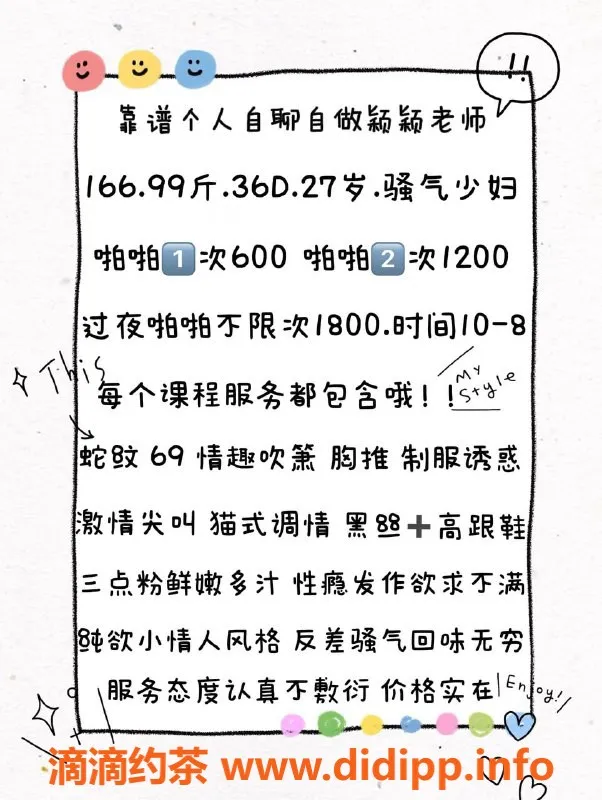 !!
靠谱个人自聊自做颖颖老师
166.99斤.36D.27岁.骚气少妇
啪啪1️⃣次600 啪啪2️⃣次1200
过夜啪啪不限次1800.时间10-8
This
每个课程服务都包含哦！！
My Style
蛇蚊 69 情趣吹箫 胸推 制服诱惑
激情尖叫 猫式调情 黑丝➕高跟鞋
三点粉鲜嫩多汁 性瘾发作欲求不满
纯欲小情人风格 反差骚气回味无穷
服务态度认真不敷衍 价格实在
Enjoy!
滴滴约茶 www.didipp.info